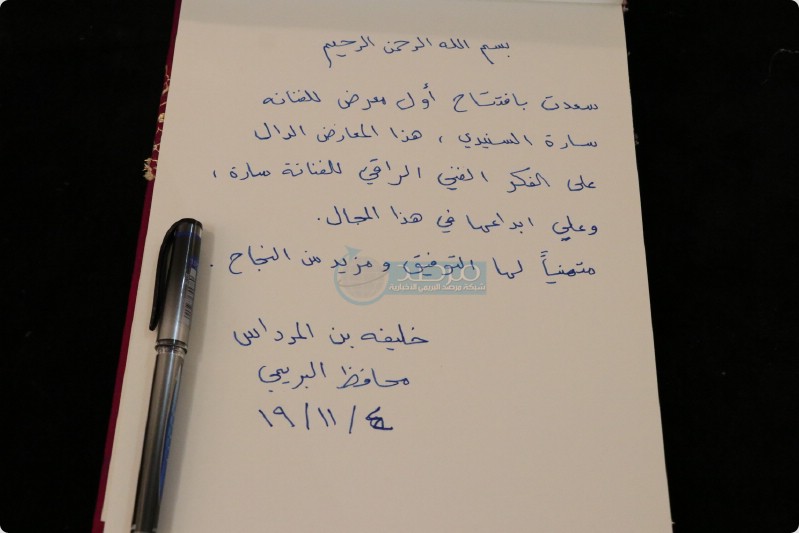 بسم الله الرحمن الرحيم
سعدت بافتتاح أول معرض للفنانه
سارة السنيدي ، هذا المعارض الدال
على الفكر الفني الراقي للفنانة سارة ،
وعلي ابداعها في هذا المجال .
متمنياً لها التوفيق و مزيد من النجاح .
مرصد
شبكة مرصد البريمي الاخبارية
خليفه بن المرداس
محافظ البريمي
١٩/١١/